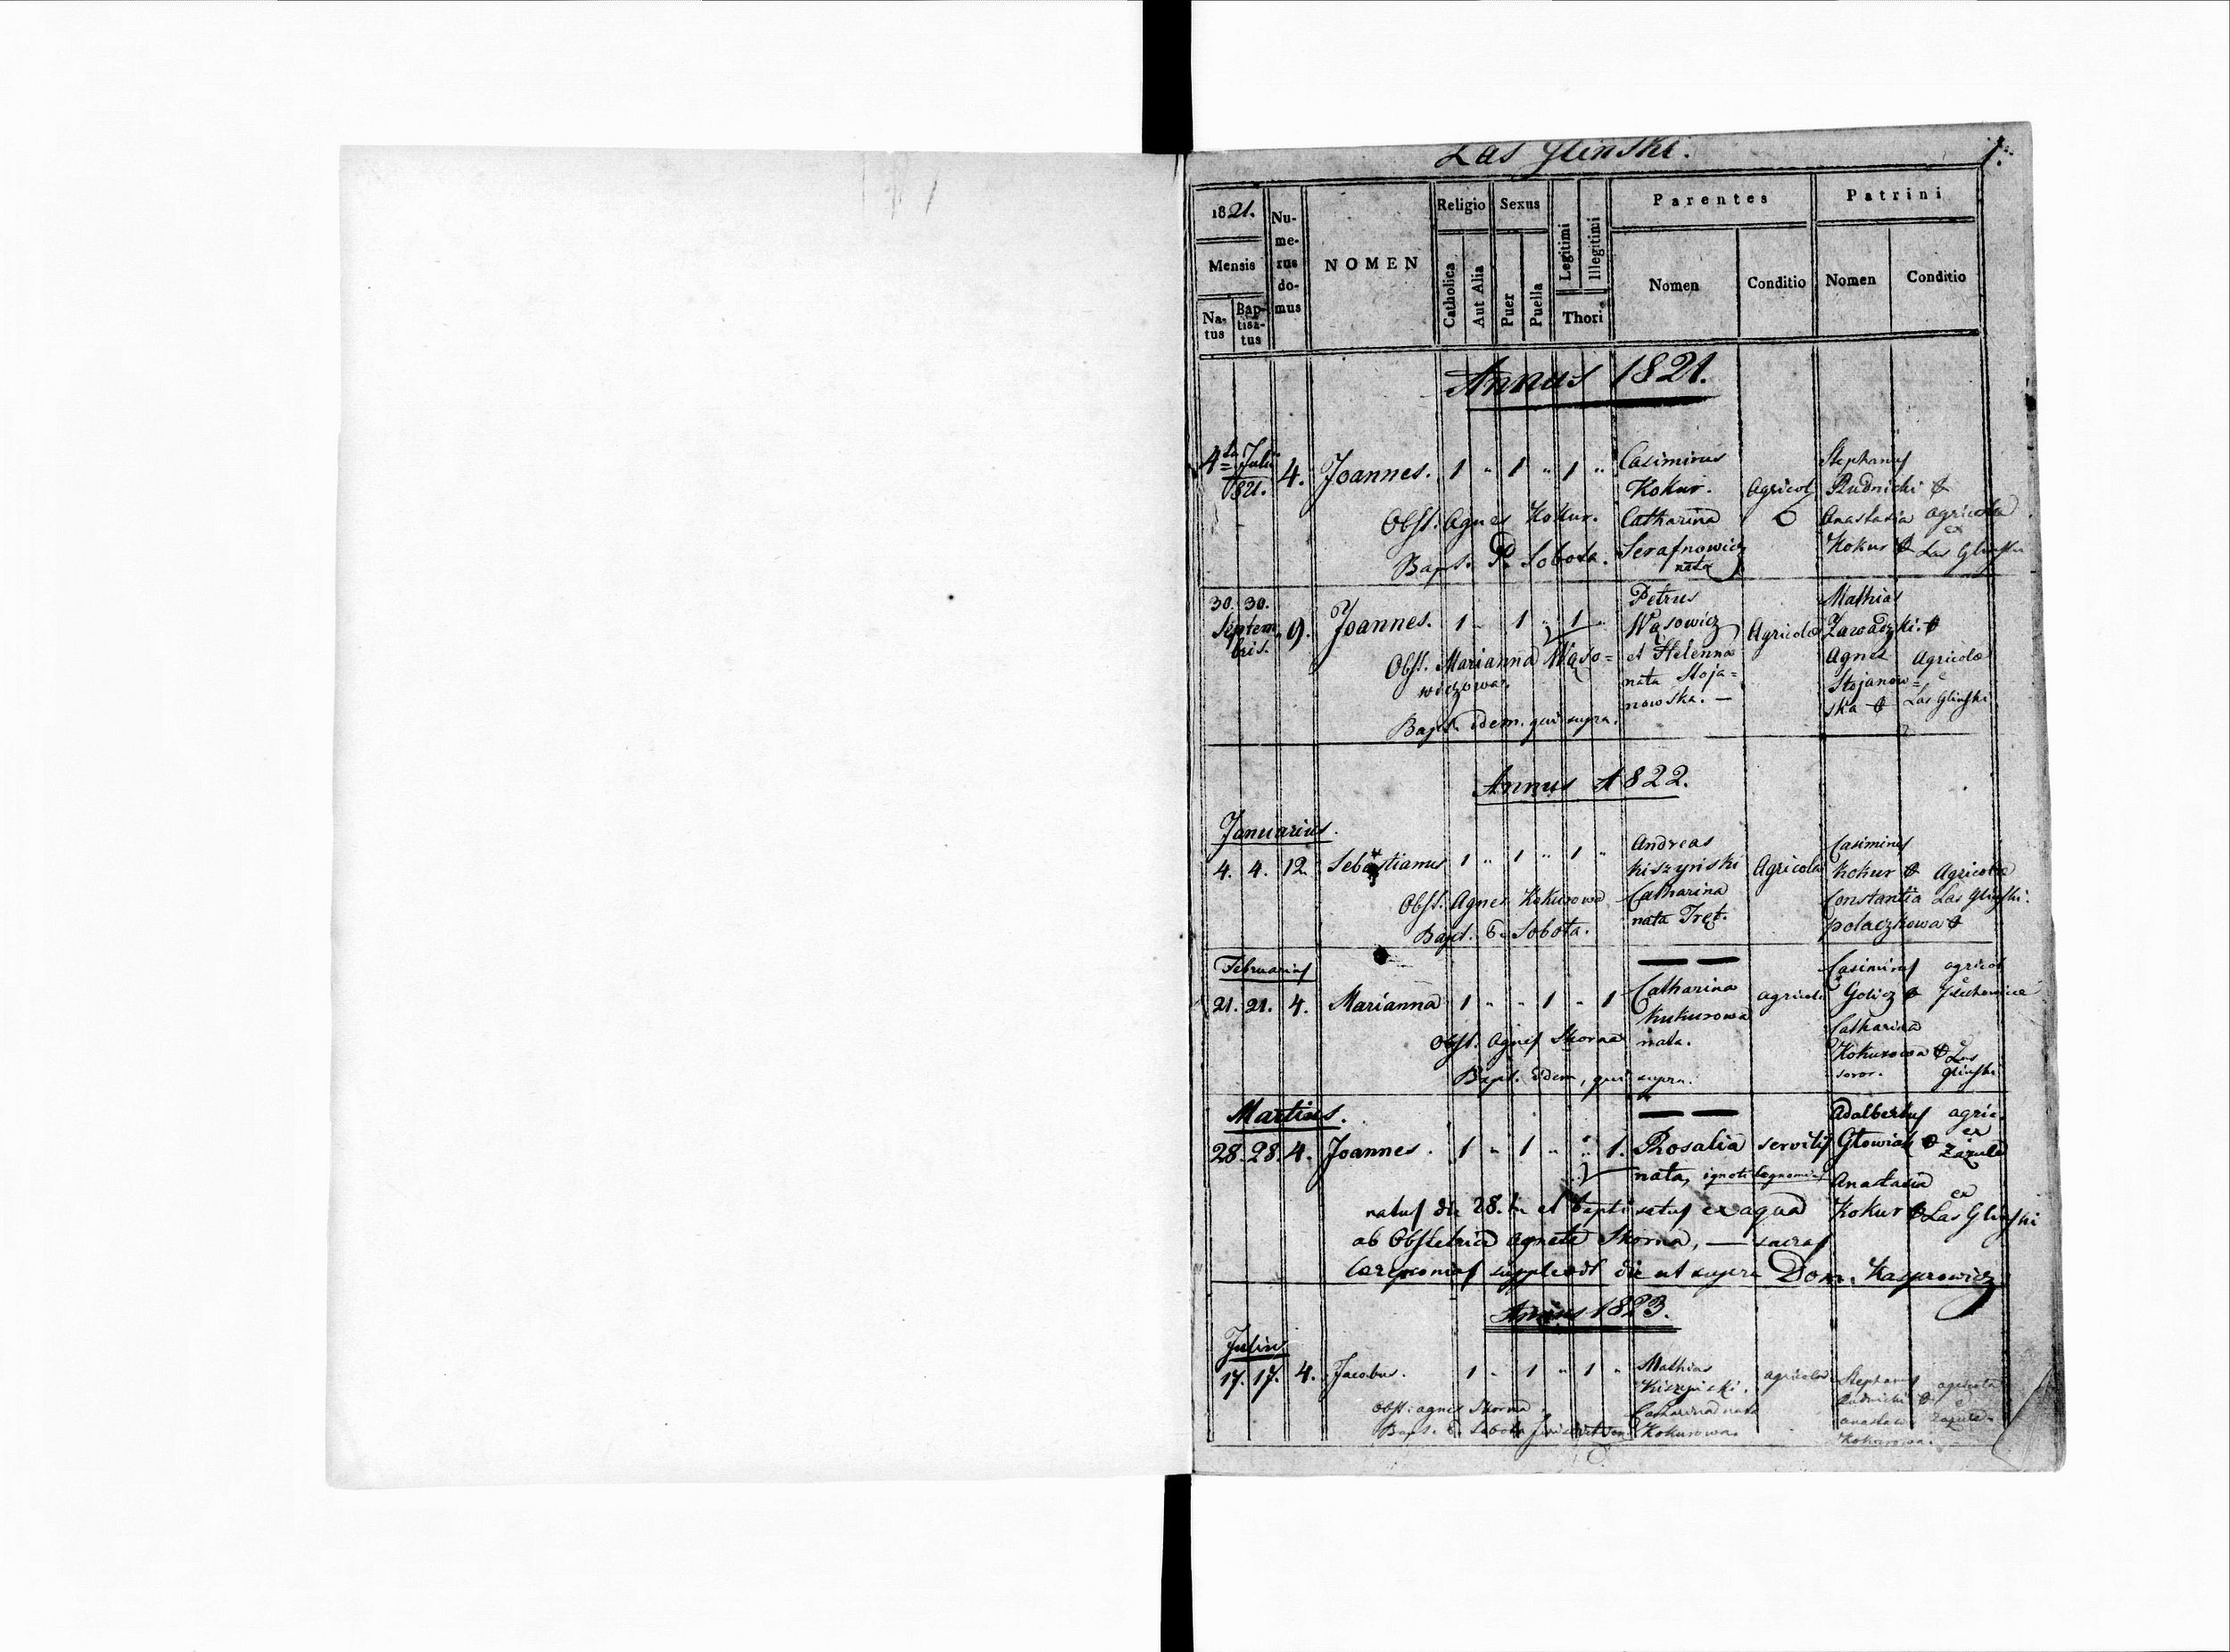 Las Gliński. 1.
1821. Nu-me-rus do-mus NOMEN Religio Sexus Legitimi Illegitimi Parentes Patrini
Mensis Catholica Aut Alia Puer Puella Thori Nomen Conditio Nomen Conditio
Na-tus Bap-tisa-tus
Annus 1821.
4ta Julii 1821. 4. Joannes. 1 " 1 " 1 " Casimirus Stephanus
Kokur. Agricol Rudnicki &
Obst. Agnes Kokur. Catharina Anastasia agricolae
Bapt. P. Sobota. Serafinowicz nata Kokur & ex Las Gliński
30. 30. Septembris. 9. Joannes. 1 " 1 " 1 " Petrus Mathias
Wąsowicz Agricola Zawadzki. &
Obst. Marianna Wąso= et Helenna Agnes Agricolae
wiczowa. nata Stoja= Stojanow=
Bapt. idem. qui supra. nowska. — ska & Las Gliński
Annus 1822.
Januarius.
4. 4. 12 Sebastianus 1 " 1 " 1 " Andreas Casimirus
Kiszyński Agricola Kokur & Agricolae
Obst. Agnes Kokurowa Catharina Constantia Las Gliński.
Bapt. Sobota. nata Tręt. polaczkowa &
Februarius
21. 21. 4. Marianna 1 " " 1 " 1 Catharina agricola Casimirus agricol
Kukurowa Golicz &
Obst. Agnes Skorna nata. Catharina
Bapt. idem, qui supra. Kokurowa & Las
soror. Gliński
Martius.
28. 28. 4. Joannes. 1 " 1 " " 1. Rosalia servilis Adalbertus agric.
nata, ignoti cognominis Głowiak & ex Zazule
natus die 28. hu et baptisatus ex aqua Anastasia
ab Obstetrice Agnete Skorna, — sacras Kokur & ex Las Gliński
Caeremonias supplevit die ut supra Dom. Kasprowicz
Annus 1823.
Julius
17. 17. 4. Jacobus. 1 " 1 " 1 " Mathias agricola Stephanus agricola
Kiszyński. Rudnicki &
Obst: agnes Skorna. Catharina nata Zazule
Bapt. Sobota Kokurowa. Kokurowa.